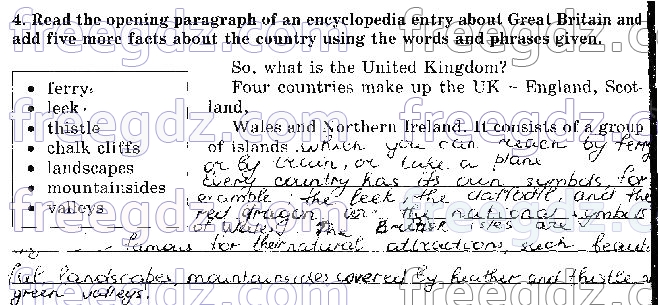 4. Read the opening paragraph of an encyclopedia entry about Great Britain and
add five more facts about the country using the words and phrases given.
• ferry
• leek
• thistle
• chalk cliffs
• landscapes
• mountainsides
• valleys
So, what is the United Kingdom?
Four countries make up the UK – England, Scot-
land,
Wales and Northern Ireland. It consists of a group
of islands which you can reach by ferry
or by train, or take a plane
Every country has its own symbols, for
example: the leek, the daffodil, and the
red dragon are the national symbols
of Wales. The British isles are
famous for their natural attractions, such beauti-
ful landscapes, mountainsides covered by heather and thistle
green valleys.
freegdz.com